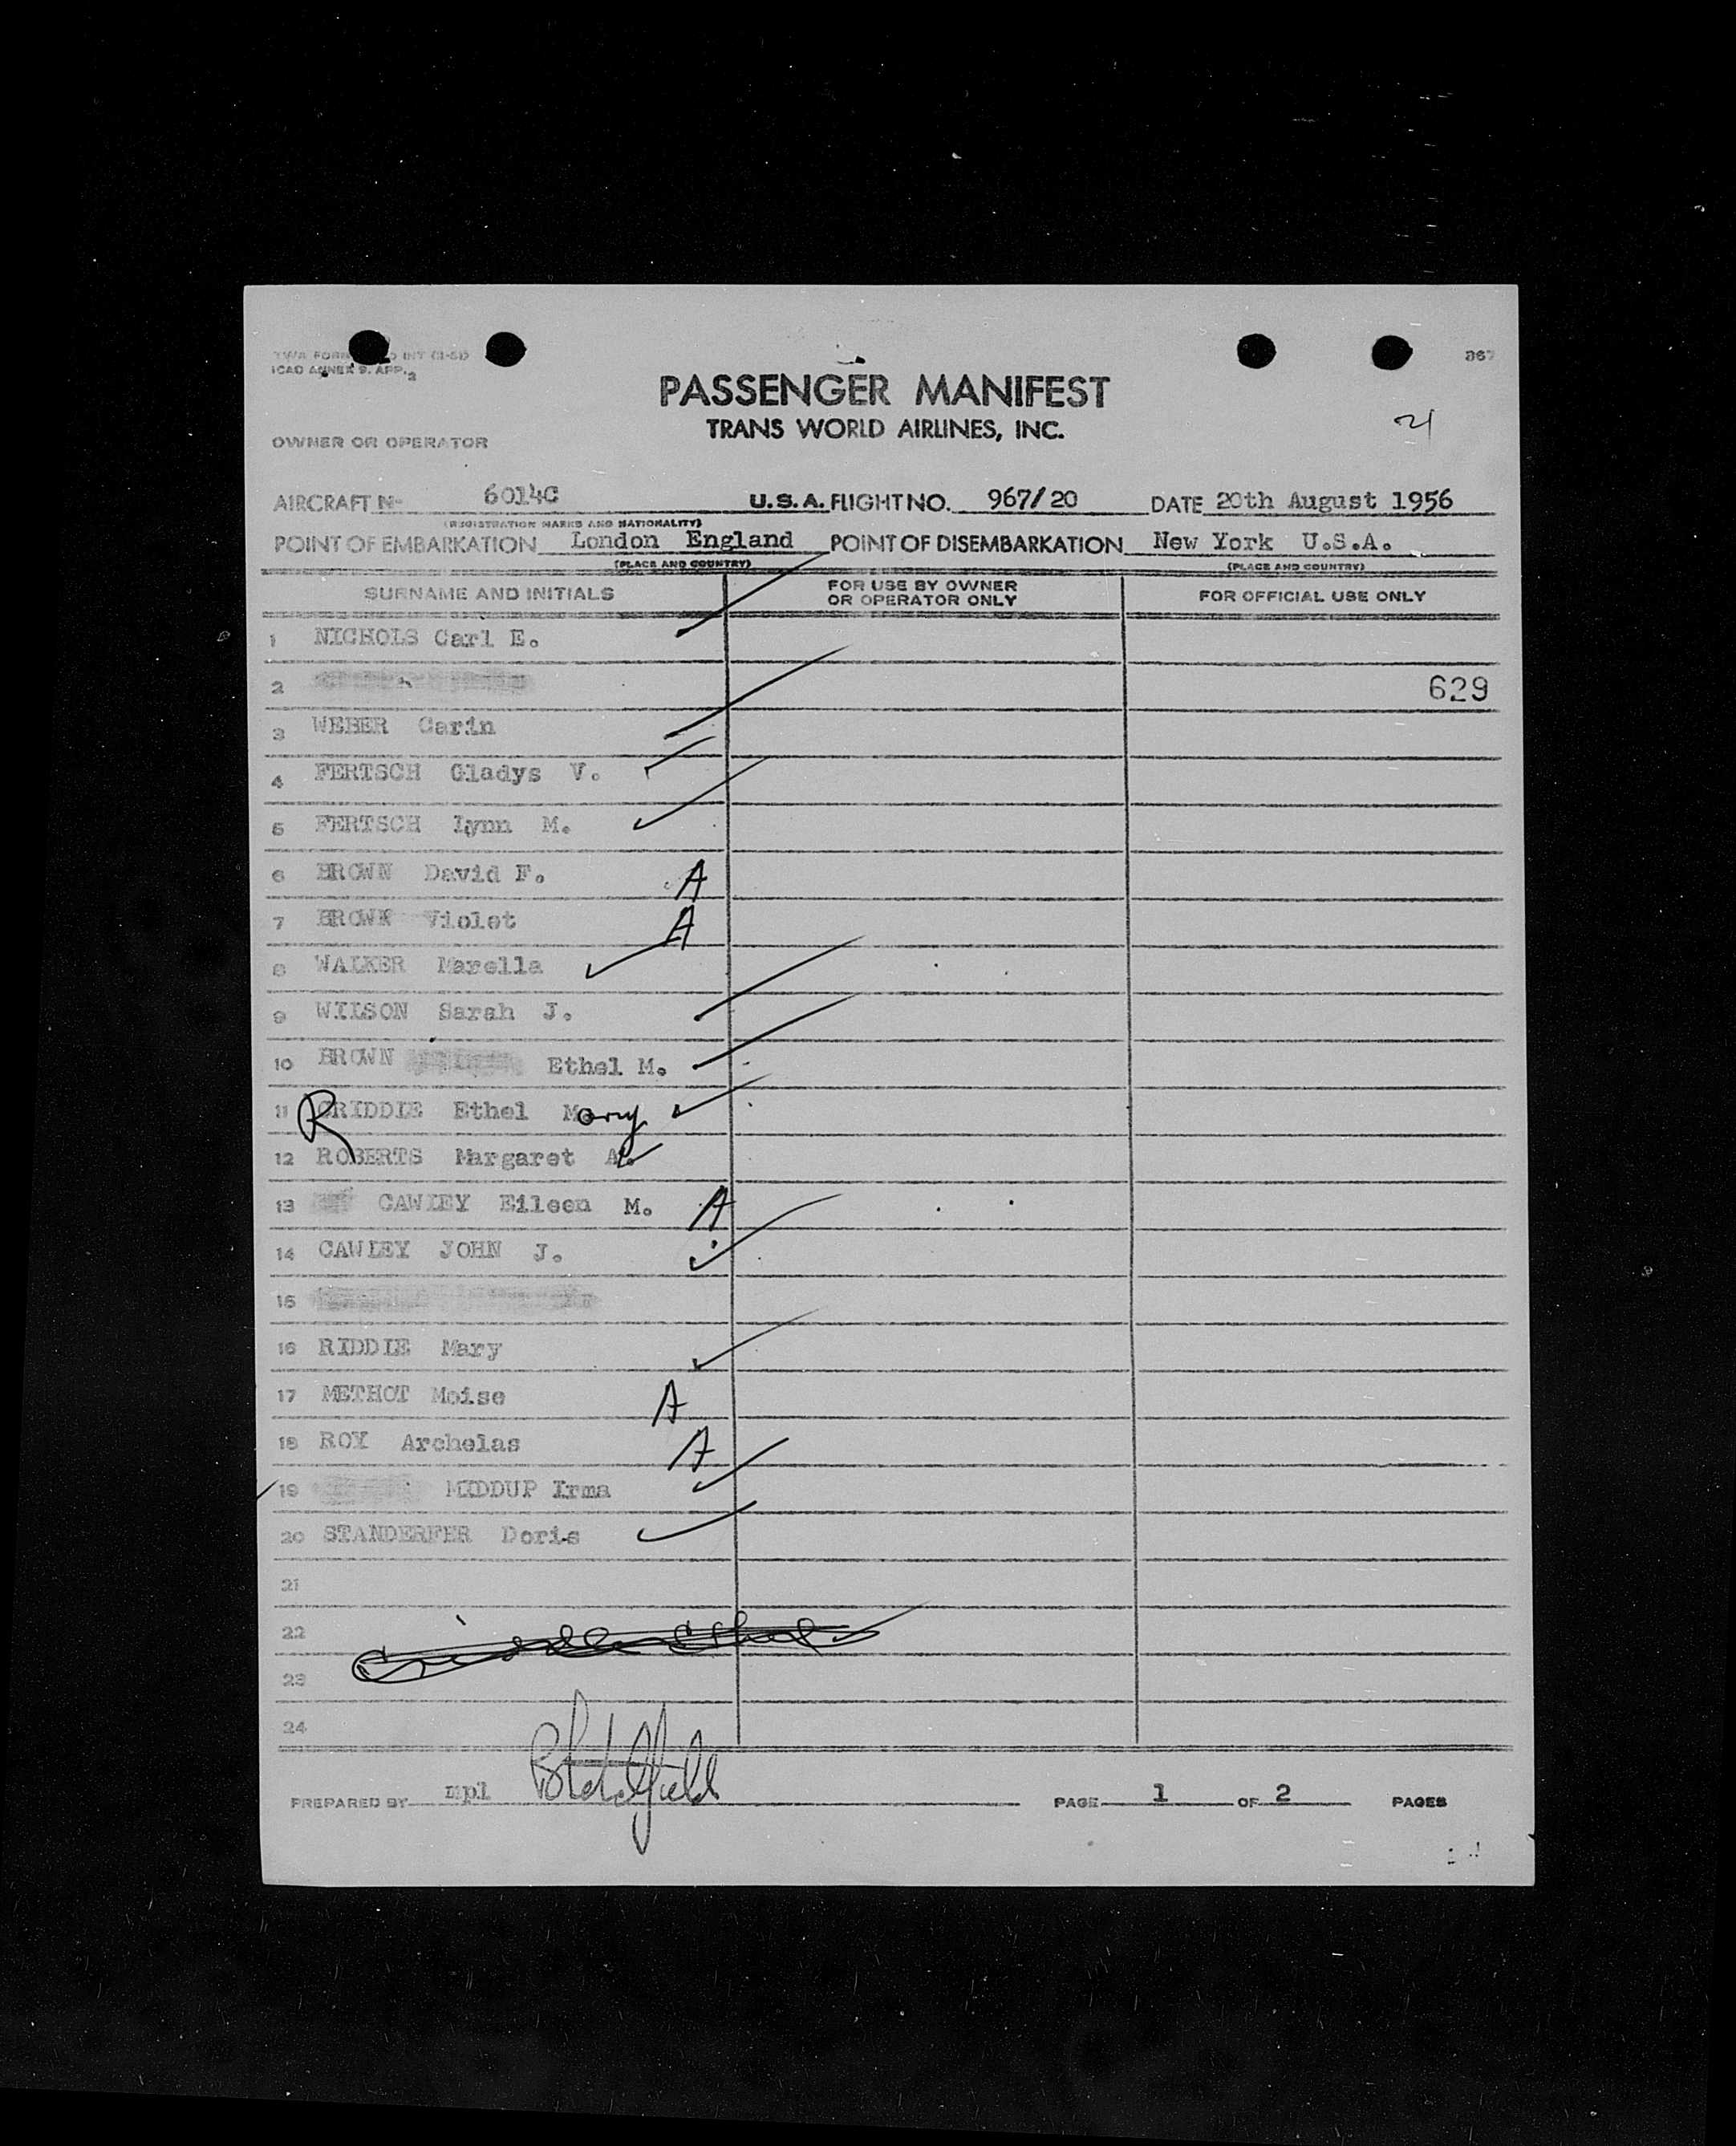 ICAO ANNEX 9. APP. 2
367
PASSENGER MANIFEST
TRANS WORLD AIRLINES, INC.
21
OWNER OR OPERATOR
AIRCRAFT No 6014C U.S.A. FLIGHT NO. 967/20 DATE 20th August 1956
(REGISTRATION MARKS AND NATIONALITY)
POINT OF EMBARKATION London England POINT OF DISEMBARKATION New York U.S.A.
(PLACE AND COUNTRY) (PLACE AND COUNTRY)
SURNAME AND INITIALS FOR USE BY OWNER OR OPERATOR ONLY FOR OFFICIAL USE ONLY
1 NICHOLS Carl E.
2 629
3 WEBER Carin
4 FERTSCH Gladys V.
5 FERTSCH Lynn M.
6 BROWN David F. A
7 BROWN Violet A
8 WALKER Marella
9 WILSON Sarah J.
10 BROWN Ethel M.
11 R CRIDDLE Ethel Mary
12 ROBERTS Margaret A.
13 CAWLEY Eileen M. A
14 CAWLEY JOHN J.
15
16 RIDDLE Mary
17 METHOT Moise A
18 ROY Archelas A
19 MIDDUP Irma
20 STANDERFER Doris
21
22
23
24
PREPARED BY mpl PAGE 1 OF 2 PAGES